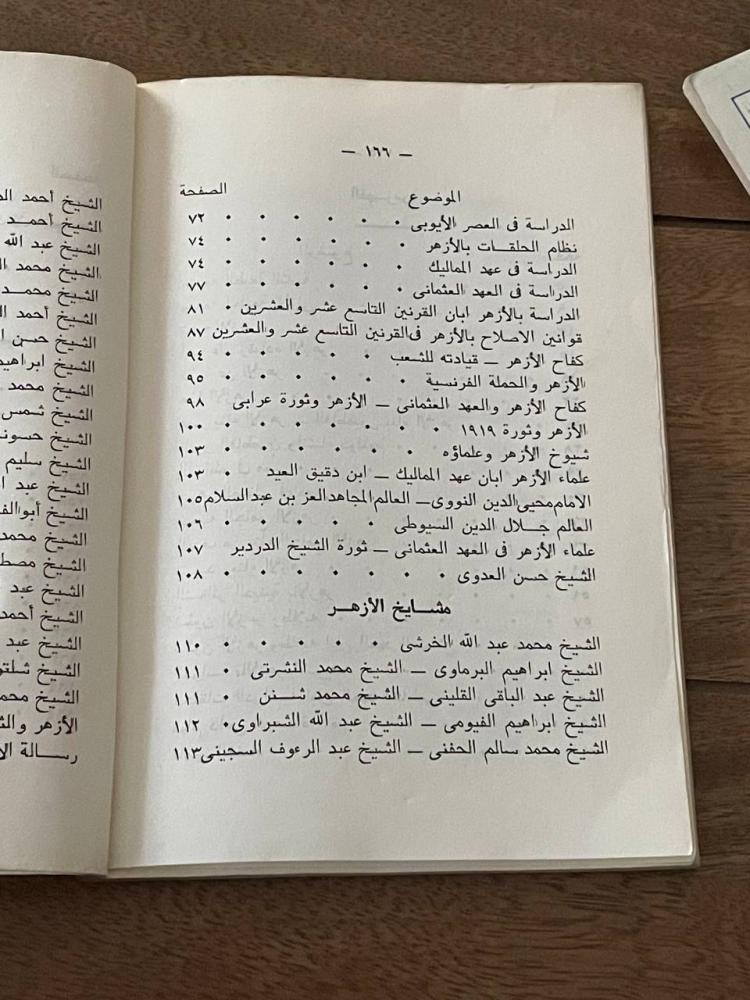 — ١٦٦ —
الموضوع الصفحة
الدراسة فى العصر الأيوبى ٠ ٠ ٠ ٠ ٠ ٠ ٧٢
نظام الحلقات بالأزهر ٠ ٠ ٠ ٠ ٠ ٠ ٧٤
الدراسة فى عهد المماليك ٠ ٠ ٠ ٠ ٠ ٧٤
الدراسة فى العهد العثمانى ٠ ٠ ٠ ٠ ٠ ٠ ٧٧
الدراسة بالأزهر ابان القرنين التاسع عشر والعشرين ٠ ٨١
قوانين الاصلاح بالأزهر فى القرنين التاسع عشر والعشرين ٨٧
كفاح الأزهر — قيادته للشعب ٠ ٠ ٠ ٠ ٠ ٩٤
الأزهر والحملة الفرنسية ٠ ٠ ٠ ٠ ٠ ٠ ٩٥
كفاح الأزهر والعهد العثمانى — الأزهر وثورة عرابى ٠ ٩٨
الأزهر وثورة ١٩١٩ ٠ ٠ ٠ ٠ ٠ ٠ ١٠٠
شيوخ الأزهر وعلماؤه ٠ ٠ ٠ ٠ ٠ ٠ ١٠٣
علماء الأزهر ابان عهد المماليك — ابن دقيق العيد ٠ ١٠٣
الامام محيى الدين النووى — العالم المجاهد العز بن عبد السلام ١٠٥
العالم جلال الدين السيوطى ٠ ٠ ٠ ٠ ٠ ١٠٦
علماء الأزهر فى العهد العثمانى — ثورة الشيخ الدردير ١٠٧
الشيخ حسن العدوى ٠ ٠ ٠ ٠ ٠ ٠ ١٠٨
مشايخ الأزهر
الشيخ محمد عبد الله الخرشى ٠ ٠ ٠ ٠ ٠ ١١٠
الشيخ ابراهيم البرماوى — الشيخ محمد النشرتى ٠ ١١١
الشيخ عبد الباقى القلينى — الشيخ محمد شنن ٠ ١١١
الشيخ ابراهيم الفيومى — الشيخ عبد الله الشبراوى ٠ ١١٢
الشيخ محمد سالم الحفنى — الشيخ عبد الرءوف السجينى ١١٣
الشيخ أحمد
الشيخ أحمد
الشيخ عبد الله
الشيخ محمد
الشيخ محمد
الشيخ أحمد
الشيخ حسن
الشيخ ابراهيم
الشيخ محمد
الشيخ شمس
الشيخ حسونة
الشيخ سليم
الشيخ عبد
الشيخ
الشيخ محمد
الشيخ
الشيخ عبد
الشيخ أحمد
الشيخ عبد
الشيخ
الشيخ
الأزهر
رسالة